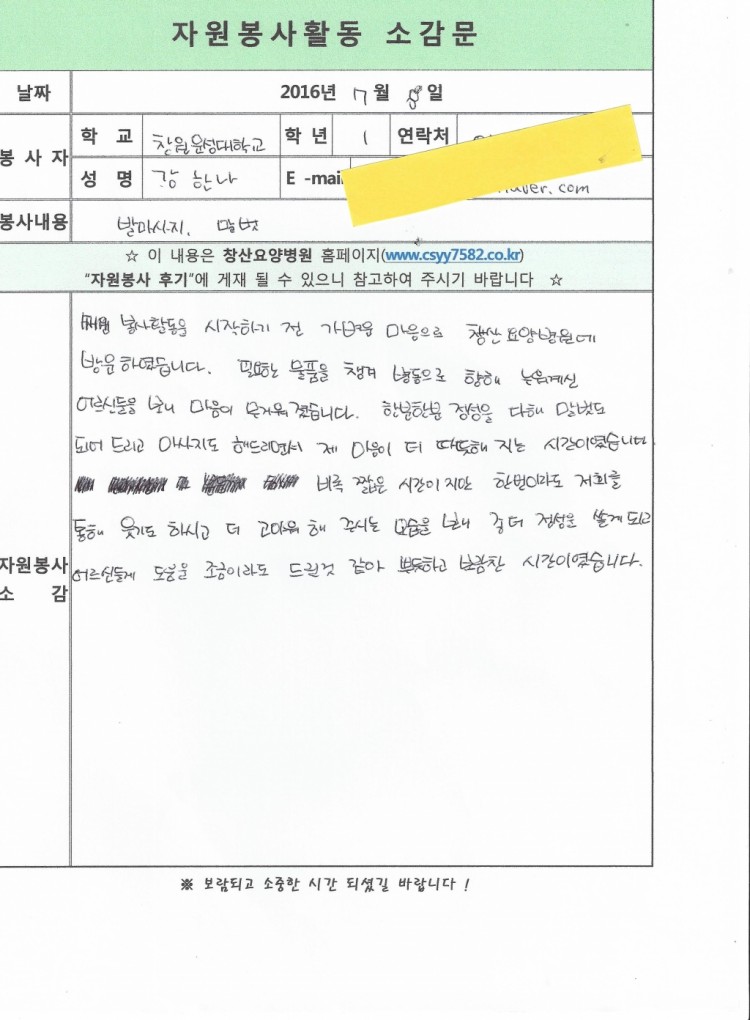 자원봉사활동 소감문
날짜 2016년 7월 8일
봉사자 학교 창원문성대학교 학년 1 연락처
성명 강한나 E-mail naver.com
봉사내용 발마사지, 말벗
☆ 이 내용은 창산요양병원 홈페이지(www.csyy7582.co.kr)
"자원봉사 후기"에 게재 될 수 있으니 참고하여 주시기 바랍니다 ☆
봉사활동을 시작하기 전 가벼운 마음으로 창산요양병원에
방문하였습니다. 필요한 물품을 챙겨 병동으로 향해 누워계신
어르신들을 보니 마음이 무거워졌습니다. 한분한분 정성을 다해 말벗도
되어 드리고 마사지도 해드리면서 제 마음이 더 따뜻해 지는 시간이였습니다.
비록 짧은 시간이지만 한번이라도 저희를
통해 웃기도 하시고 더 고마워 해 주시는 모습을 보니 좀 더 정성을 쏟게 되고
자원봉사 소감 어르신들께 도움을 조금이라도 드린것 같아 뿌듯하고 보람찬 시간이였습니다.
※ 보람되고 소중한 시간 되셨길 바랍니다 !